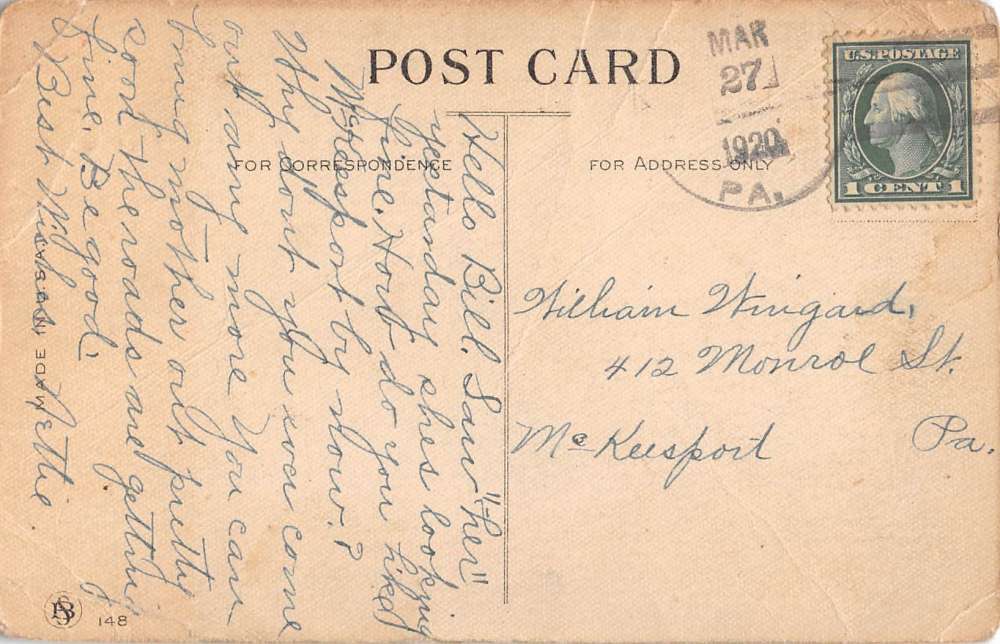 POST CARD
FOR CORRESPONDENCE
FOR ADDRESS ONLY
MAR
27
1920
PA.
U.S. POSTAGE
1 CENT 1
Hello Bill. Saw "her"
yestanday shes looking
fine. How do you like
McKeesport by now?
Why dont you ever come
out any more. You can
bring mother out pretty
soon the roads are getting
fine. Be good.
Best Wishes Artie
William Wingard,
412 Monroe St.
McKeesport Pa.
MADE IN U.S.A.
PSB
148